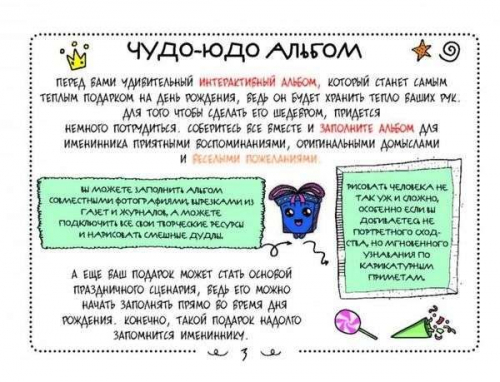 ЧУДО-ЮДО АЛЬБОМ
ПЕРЕД ВАМИ УДИВИТЕЛЬНЫЙ ИНТЕРАКТИВНЫЙ АЛЬБОМ, КОТОРЫЙ СТАНЕТ САМЫМ
ТЕПЛЫМ ПОДАРКОМ НА ДЕНЬ РОЖДЕНИЯ, ВЕДЬ ОН БУДЕТ ХРАНИТЬ ТЕПЛО ВАШИХ РУК.
ДЛЯ ТОГО ЧТОБЫ СДЕЛАТЬ ЕГО ШЕДЕВРОМ, ПРИДЕТСЯ
НЕМНОГО ПОТРУДИТЬСЯ. СОБЕРИТЕСЬ ВСЕ ВМЕСТЕ И ЗАПОЛНИТЕ АЛЬБОМ ДЛЯ
ИМЕНИННИКА ПРИЯТНЫМИ ВОСПОМИНАНИЯМИ, ОРИГИНАЛЬНЫМИ ДОМЫСЛАМИ
И ВЕСЕЛЫМИ ПОЖЕЛАНИЯМИ.
ВЫ МОЖЕТЕ ЗАПОЛНИТЬ АЛЬБОМ
СОВМЕСТНЫМИ ФОТОГРАФИЯМИ, ВЫРЕЗКАМИ ИЗ
ГАЗЕТ И ЖУРНАЛОВ, А МОЖЕТЕ
ПОДКЛЮЧИТЬ ВСЕ СВОИ ТВОРЧЕСКИЕ РЕСУРСЫ
И НАРИСОВАТЬ СМЕШНЫЕ ДУДЛЫ.
РИСОВАТЬ ЧЕЛОВЕКА НЕ
ТАК УЖ И СЛОЖНО,
ОСОБЕННО ЕСЛИ ВЫ
ДОБИВАЕТЕСЬ НЕ
ПОРТРЕТНОГО СХОД-
СТВА, НО МГНОВЕННОГО
УЗНАВАНИЯ ПО
КАРИКАТУРНЫМ
ПРИМЕТАМ.
А ЕЩЕ ВАШ ПОДАРОК МОЖЕТ СТАТЬ ОСНОВОЙ
ПРАЗДНИЧНОГО СЦЕНАРИЯ, ВЕДЬ ЕГО МОЖНО
НАЧАТЬ ЗАПОЛНЯТЬ ПРЯМО ВО ВРЕМЯ ДНЯ
РОЖДЕНИЯ. КОНЕЧНО, ТАКОЙ ПОДАРОК НАДОЛГО
ЗАПОМНИТСЯ ИМЕНИННИКУ.
3